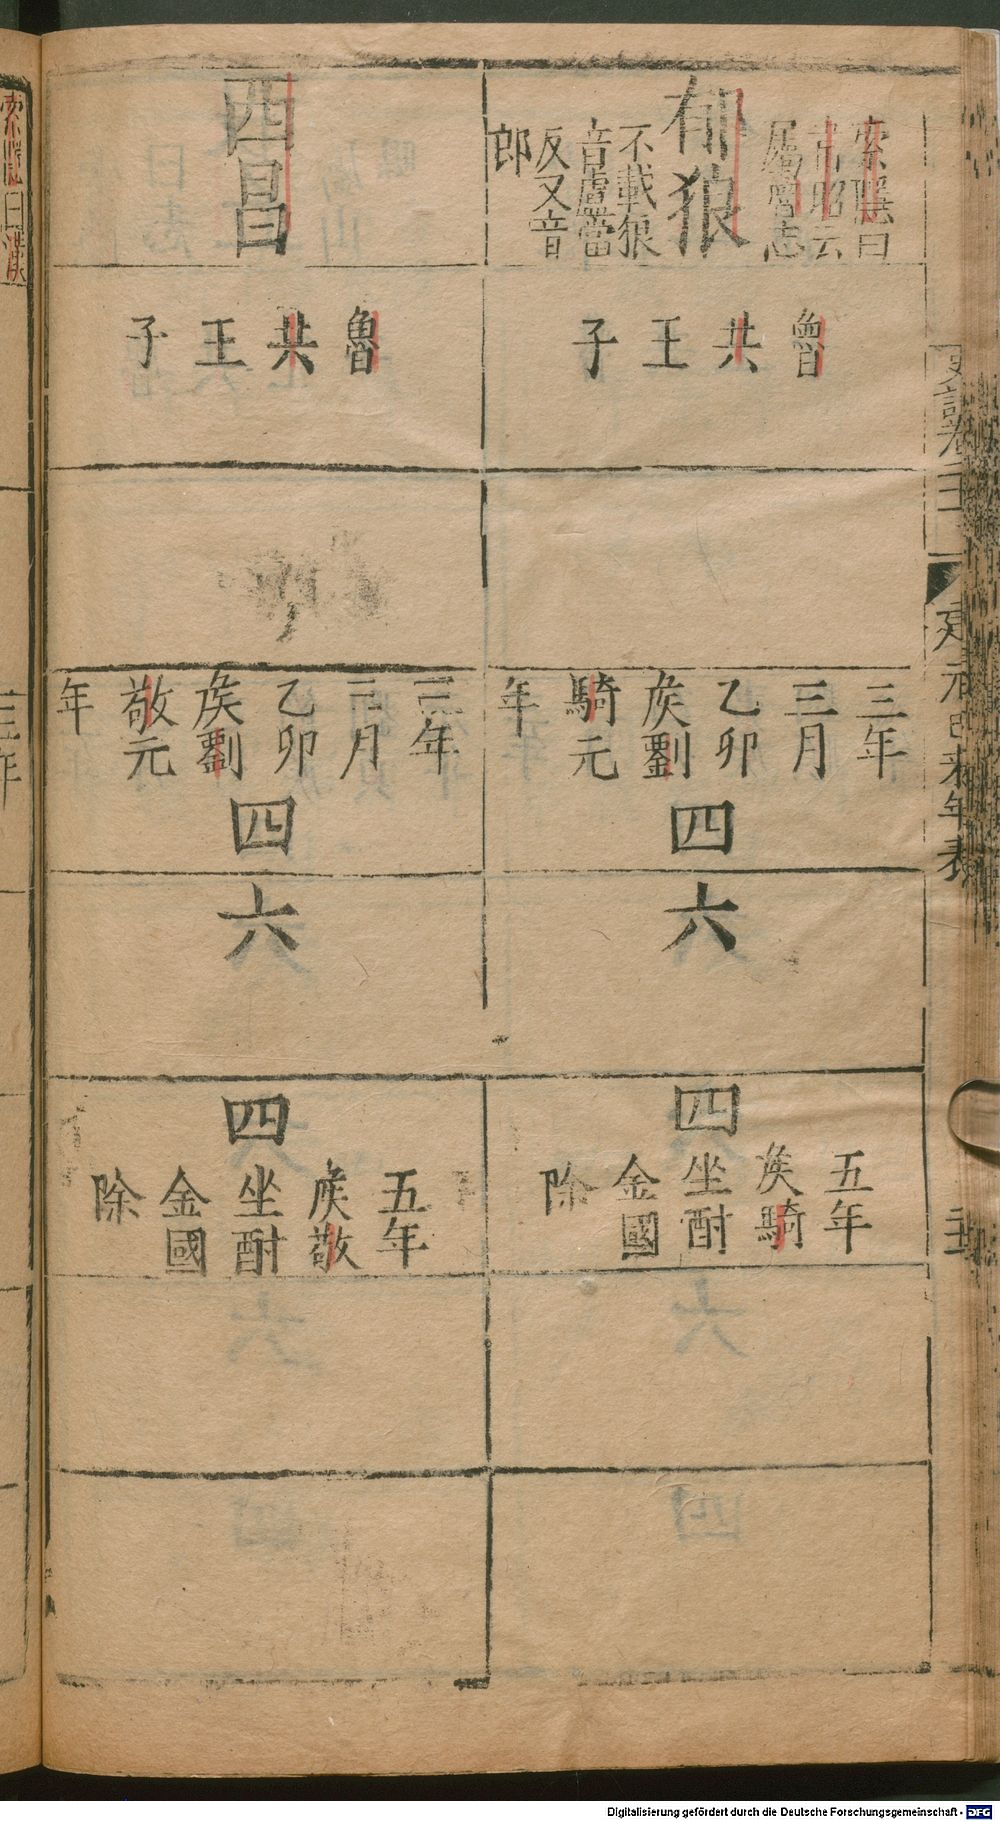 郁狼
索隱曰
韋昭云
屬魯志
不載狼
音盧當
反又音
郎
魯
共
王
子
三年
三月
乙卯
矦劉
騎元
年
四
六
四
五年
矦騎
坐酎
金國
除
西昌
魯
共
王
子
三年
三月
乙卯
矦劉
敬元
年
四
六
四
五年
矦敬
坐酎
金國
除
史記卷二十
建元已來年表
索隱曰漢
三年
Digitalisierung gefördert durch die Deutsche Forschungsgemeinschaft - DFG